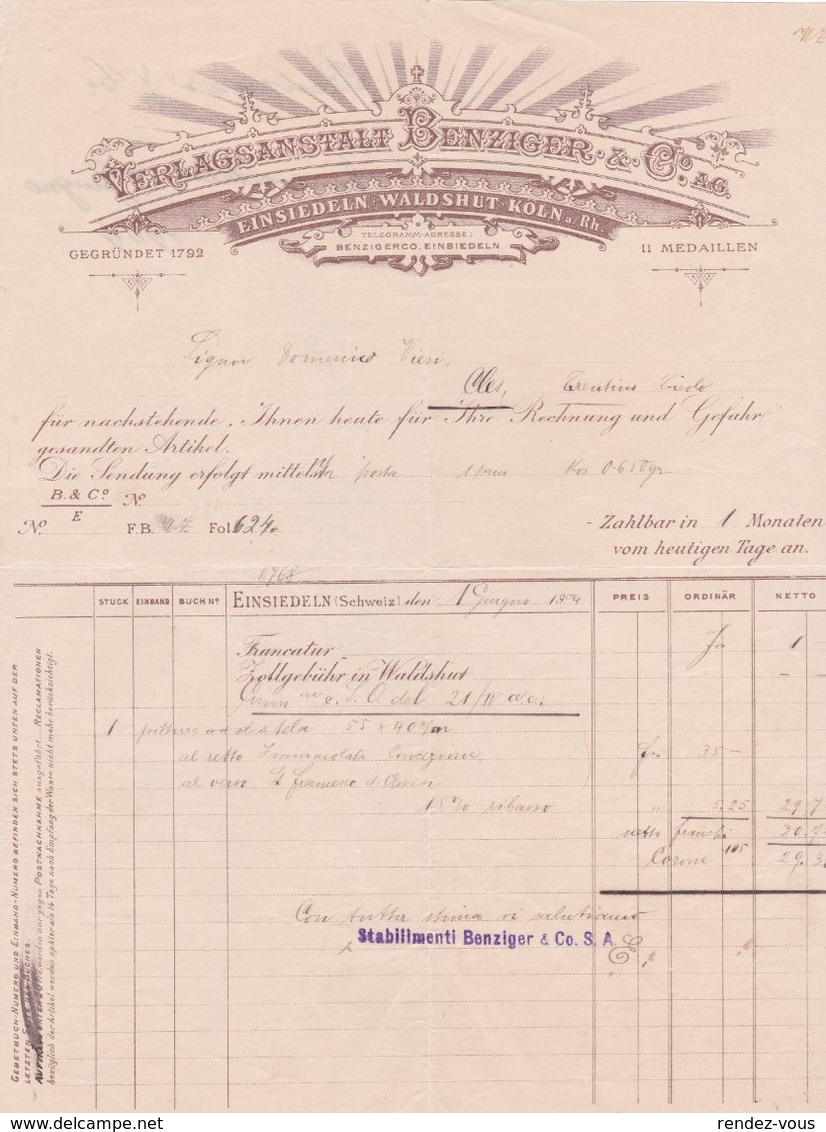 VERLAGSANSTALT BENZIGER & Co. A.G.
EINSIEDELN WALDSHUT KÖLN a/Rh.
TELEGRAMM-ADRESSE:
BENZIGERCO, EINSIEDELN
GEGRÜNDET 1792
11 MEDAILLEN
Signor Domenico Viesi,
Cles, Trentino Tirolo
für nachstehende, Ihnen heute für Ihre Rechnung und Gefahr
gesandten Artikel.
Die Sendung erfolgt mittelst posta 1 pacco Kos 0.650 gr
B. & Co.
E
No
No F.B. Fol. 624.
- Zahlbar in 1 Monaten
vom heutigen Tage an.
6768
STÜCK EINBAND BUCH No EINSIEDELN (Schweiz) den 1 Giugno 1904 PREIS ORDINÄR NETTO
Francatur fr 1 —
Zollgebühr in Waldshut — —
e. S. O. del 21/IV a.c.
1 pittura ad olio tela 55 x 40 c/m
al retto Immacolata Concezione, frs 35 —
al verso St Francesco d'Assisi
15% ribasso " 5.25 29.7
netto franchi 30.7
Corone 105 29.3
Con tutta stima vi salutiamo
Stabilimenti Benziger & Co. S. A.
GEBETBUCH-NUMERO UND EINBAND-NUMERO BEFINDEN SICH STETS UNTEN AUF DER
LETZTEN SEITE DES BUCHES.
AUFTRÄGE UNTER werden nur gegen POSTNACHNAHME ausgeführt. RECLAMATIONEN
bezüglich der Artikel werden später als 14 Tage nach Empfang der Waare nicht mehr berücksichtigt.
rendez-vous